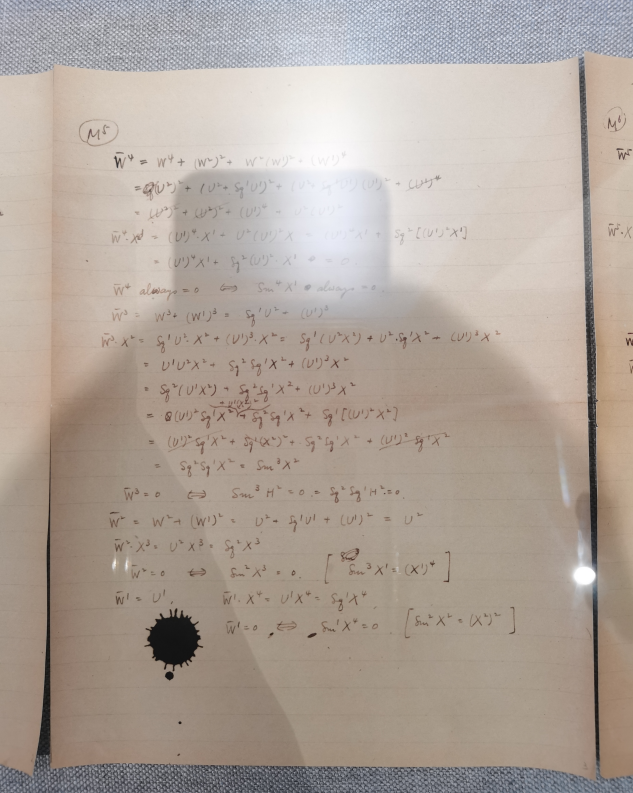 M⁵
W̄⁴ = W⁴ + (W²)² + W²(W¹)² + (W¹)⁴
= (U²)² + (U² + Sq¹U¹)² + (U² + Sq¹U¹)(U¹)² + (U¹)⁴
= (U²)² + (U²)² + (U¹)⁴ + U²(U¹)²
W̄⁴·X¹ = (U¹)⁴·X¹ + U²(U¹)²X Sq²[(U¹)²X¹]
= (U¹)⁴X¹ + Sq²(U¹)²·X¹ = 0
W̄⁴ always = 0 ⇔ Sm⁴X¹ always = 0.
W̄³ = W³ + (W¹)³ = Sq¹U² + (U¹)³
W̄³·X² = Sq¹U²·X² + (U¹)³·X² = Sq¹(U²X²) + U²·Sq¹X² + (U¹)³X²
= U¹U²X² + Sq²Sq¹X² + (U¹)³X²
= Sq²(U¹X²) + Sq²Sq¹X² + (U¹)³X²
= (U¹)²Sq¹X² + U¹(X²)² + Sq²Sq¹X² + Sq¹[(U¹)²X²]
= (U¹)²Sq¹X² + Sq¹(X²)² + Sq²Sq¹X² + (U¹)²Sq¹X²
= Sq²Sq¹X² = Sm³X²
W̄³ = 0 ⇔ Sm³H² = 0 = Sq²Sq¹H² = 0.
W̄² = W² + (W¹)² = U² + Sq¹U¹ + (U¹)² = U²
W̄²·X³ = U²X³ = Sq²X³
W̄² = 0 ⇔ Sm²X³ = 0. [Sm³X¹ = (X¹)⁴]
W̄¹ = U¹. W̄¹·X⁴ = U¹X⁴ = Sq¹X⁴
W̄¹ = 0 ⇔ Sm¹X⁴ = 0 [Sm²X² = (X²)²]